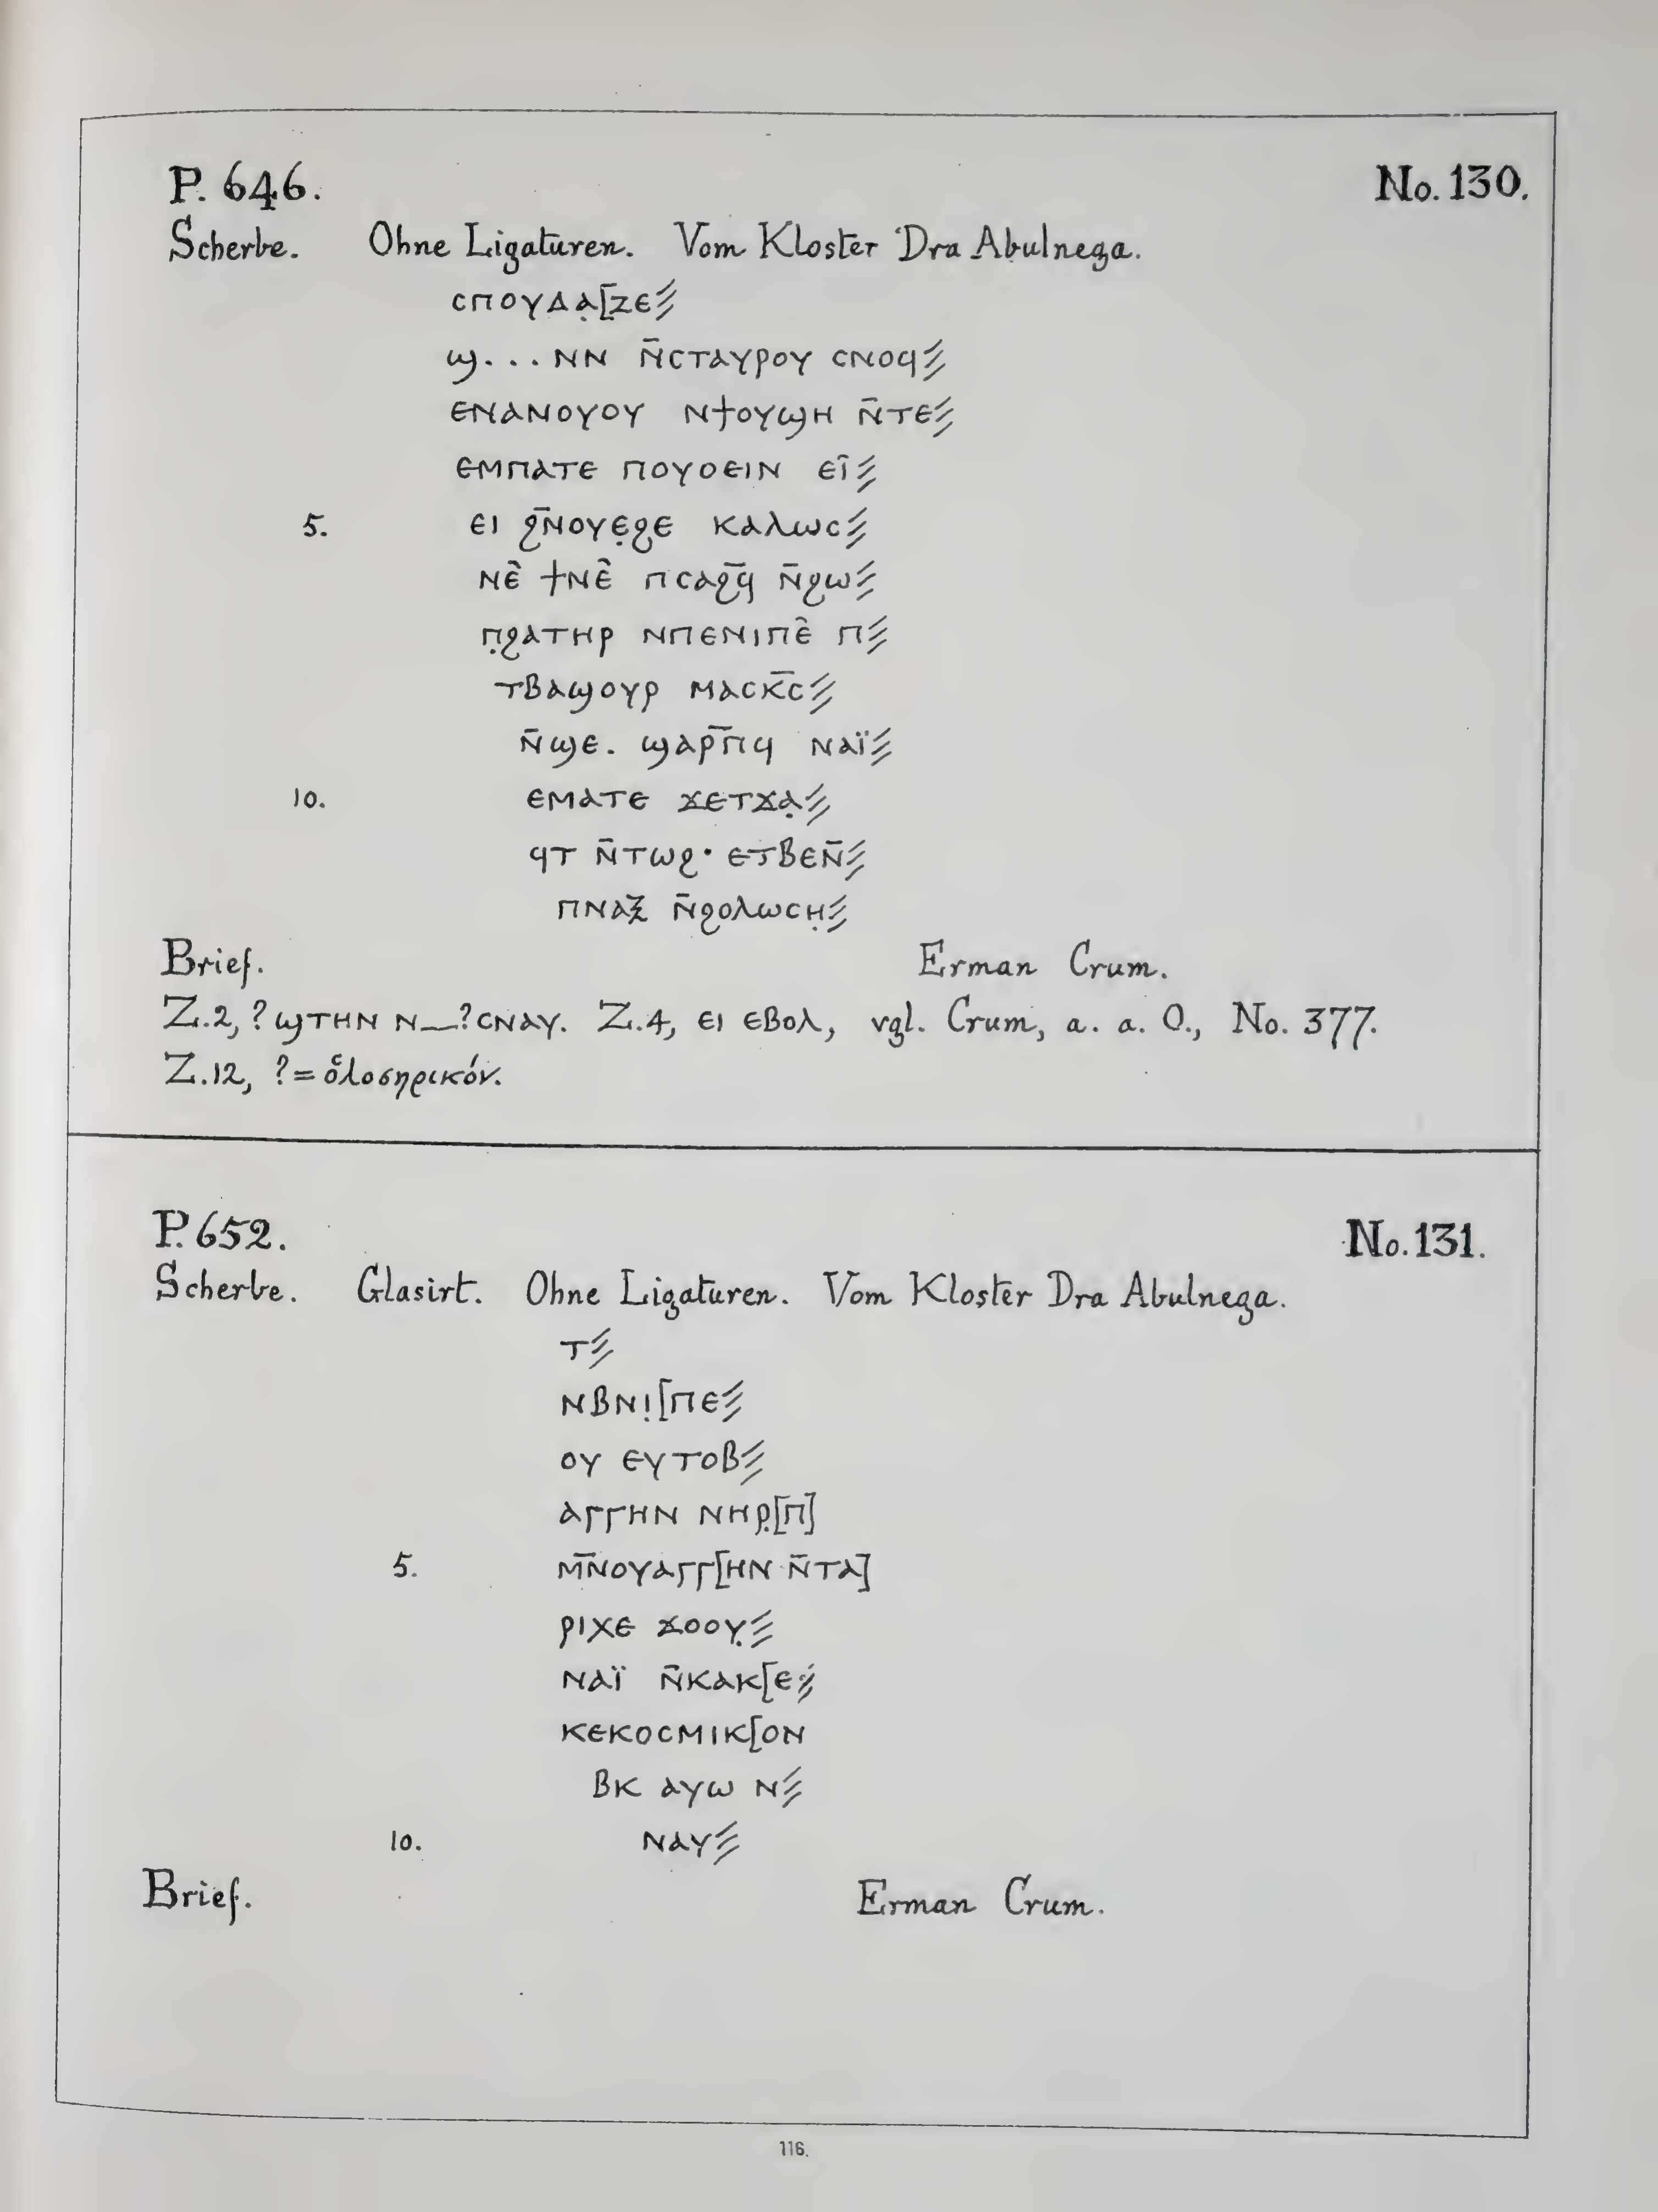 P. 646. No. 130.
Scherbe. Ohne Ligaturen. Vom Kloster Dra Abulnega.
ⲥⲡⲟⲩⲇⲁ̣[ⲍⲉ⳽
ϣ...ⲛⲛ ⲛ̄ⲥⲧⲁⲩⲣⲟⲩ ⲥⲛⲟϥ⳽
ⲉⲛⲁⲛⲟⲩⲟⲩ ⲛϯⲟⲩϣⲏ ⲛ̄ⲧⲉ⳽
ⲉⲙⲡⲁⲧⲉ ⲡⲟⲩⲟⲉⲓⲛ ⲉⲓ̂⳽
5. ⲉⲓ ϩⲛ̄ⲟⲩⲉ̣ϩⲉ ⲕⲁⲗⲱⲥ⳽
ⲛⲉ̂ ϯⲛⲉ̂ ⲡⲥⲁϩϥ̄ ⲛ̄ϩⲱ⳽
ⲡ̣ϩⲁⲧⲏⲣ ⲛⲡⲉⲛⲓⲡⲉ̂ ⲡ⳽
ⲧⲃⲁϣⲟⲩⲣ ⲙⲁⲥⲕ̄ⲥ⳽
ⲛ̄ϣⲉ. ϣⲁⲣⲡ̄ϥ ⲛⲁⲓ̈⳽
10. ⲉⲙⲁⲧⲉ ϫⲉⲧϫⲁ̣⳽
ϥⲧ ⲛ̄ⲧⲱϩ· ⲉⲧⲃⲉⲛ̄⳽
ⲡⲛⲁⲝ ⲛ̄ϩⲟⲗⲱⲥⲏ̣⳽
Brief. Erman Crum.
Z.2, ? ϣⲧⲏⲛ ⲛ—?ⲥⲛⲁⲩ. Z.4, ⲉⲓ ⲉⲃⲟⲗ, vgl. Crum, a. a. O., No. 377.
Z.12, ? = ὁλοσηρικόν.
P. 652. No. 131.
Scherbe. Glasirt. Ohne Ligaturen. Vom Kloster Dra Abulnega.
ⲧ⳽
ⲛⲃⲛⲓ̣[ⲡⲉ⳽
ⲟⲩ ⲉⲩⲧⲟⲃ⳽
ⲁⲅⲅⲏⲛ ⲛⲏⲣ̣[ⲡ]
5. ⲙ̄ⲛⲟⲩⲁⲅⲅ[ⲏⲛ ⲛ̄ⲧⲁ]
ⲣⲓⲭⲉ ϫⲟⲟⲩ̣⳽
ⲛⲁⲓ̈ ⲛ̄ⲕⲁⲕ[ⲉ⳽
ⲕⲉⲕⲟⲥⲙⲓⲕ[ⲟⲛ
ⲃⲕ ⲁⲩⲱ ⲛ⳽
10. ⲛⲁⲩ⳽
Brief. Erman Crum.
116.